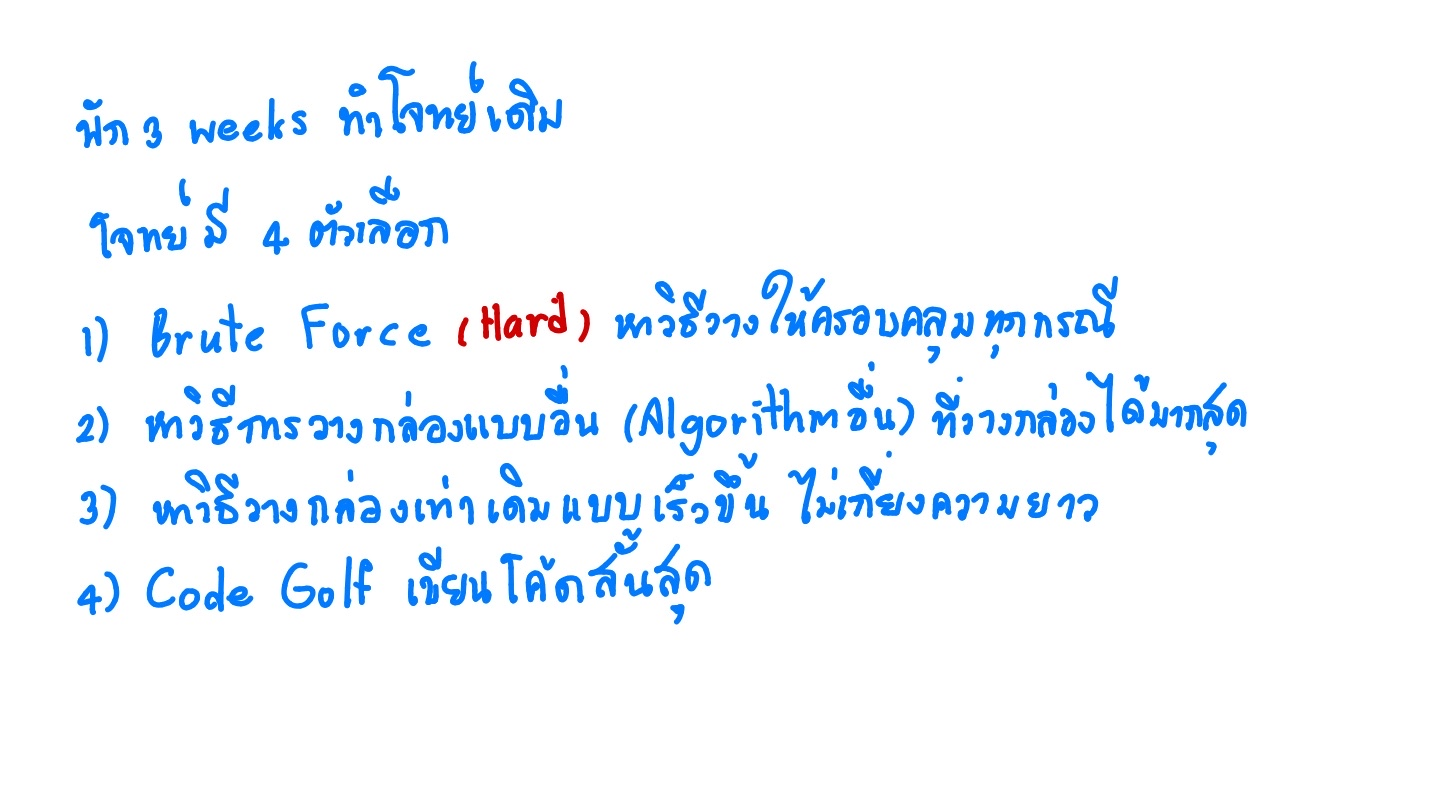 พัก 3 weeks ทำโจทย์เดิม
โจทย์มี 4 ตัวเลือก
1) Brute Force (Hard) หาวิธีวางให้ครอบคลุมทุกกรณี
2) หาวิธีการวางกล่องแบบอื่น (Algorithm อื่น) ที่วางกล่องได้มากสุด
3) หาวิธีวางกล่องเท่าเดิมแบบเร็วขึ้น ไม่เกี่ยงความยาว
4) Code Golf เขียนโค้ดสั้นสุด